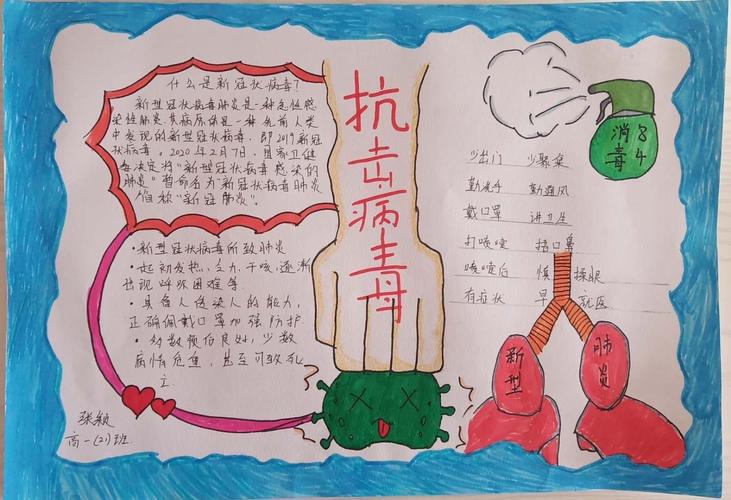 什么是新冠状病毒?
新型冠状病毒肺炎是一种急性感
染性肺炎,其病原体是一种先前人类
中发现的新型冠状病毒,即2019新冠
状病毒。2020年2月7日,国家卫健
委决定将"新型冠状病毒感染的
肺炎"暂命名为"新冠状病毒肺炎
俗称"新冠肺炎"。
·新型冠状病毒所致肺炎
·起初发热、乏力、干咳,逐渐
出现呼吸困难等
·具备人传染人的能力,
正确佩戴口罩加强防护
·多数预后良好,少数
病情危重,甚至可致死
亡
张颖
高一(21)班
抗击病毒
消毒
84
少出门 少聚集
勤洗手 勤通风
戴口罩 讲卫生
打喷嚏 捂口鼻
咳嗽后 慎揉眼
有症状 早就医
新型
肺炎